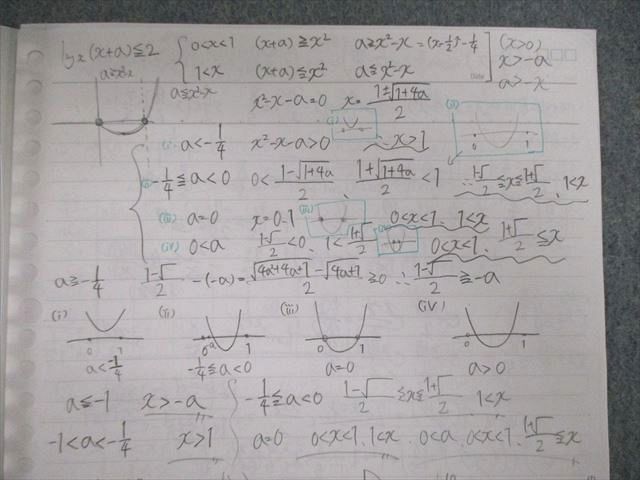 log x (x+a) ≦ 2 { 0<x<1 (x+a) ≧ x² a ≧ x²-x = (x-1/2)²-1/4 ] (x>0)
1<x (x+a) ≦ x² a ≦ x²-x x>-a
a≧x²-x a≦x²-x Date a>-x
x²-x-a=0 x= 1±√1+4a / 2
(i) a<-1/4 x²-x-a>0 (i) x>1 (ii) 0 1
(ii) -1/4≦a<0 0< 1-√1+4a / 2 、 1+√1+4a / 2 <1 ∴ 1-√ / 2 ≦x≦ 1+√ / 2 、1<x
(iii) a=0 x=0.1 (iii) 0<x<1、1<x
(iv) 0<a 1-√ / 2 <0、1< 1+√ / 2 0<x<1、 1+√ / 2 ≦x
a≧-1/4 1-√ / 2 -(-a)= √4a²+4a+1 - √4a+1 / 2 ≧0 ∴ 1-√ / 2 ≧-a
(i) (ii) (iii) (iv)
0 1 0 1 0 1 0 1
a<-1/4 -1/4≦a<0 a=0 a>0
a≦-1 x>-a -1/4≦a<0 1-√ / 2 ≦x≦ 1+√ / 2 1<x
-1<a<-1/4 x>1 a=0 0<x<1、1<x 0<a 0<x<1、 1+√ / 2 ≦x